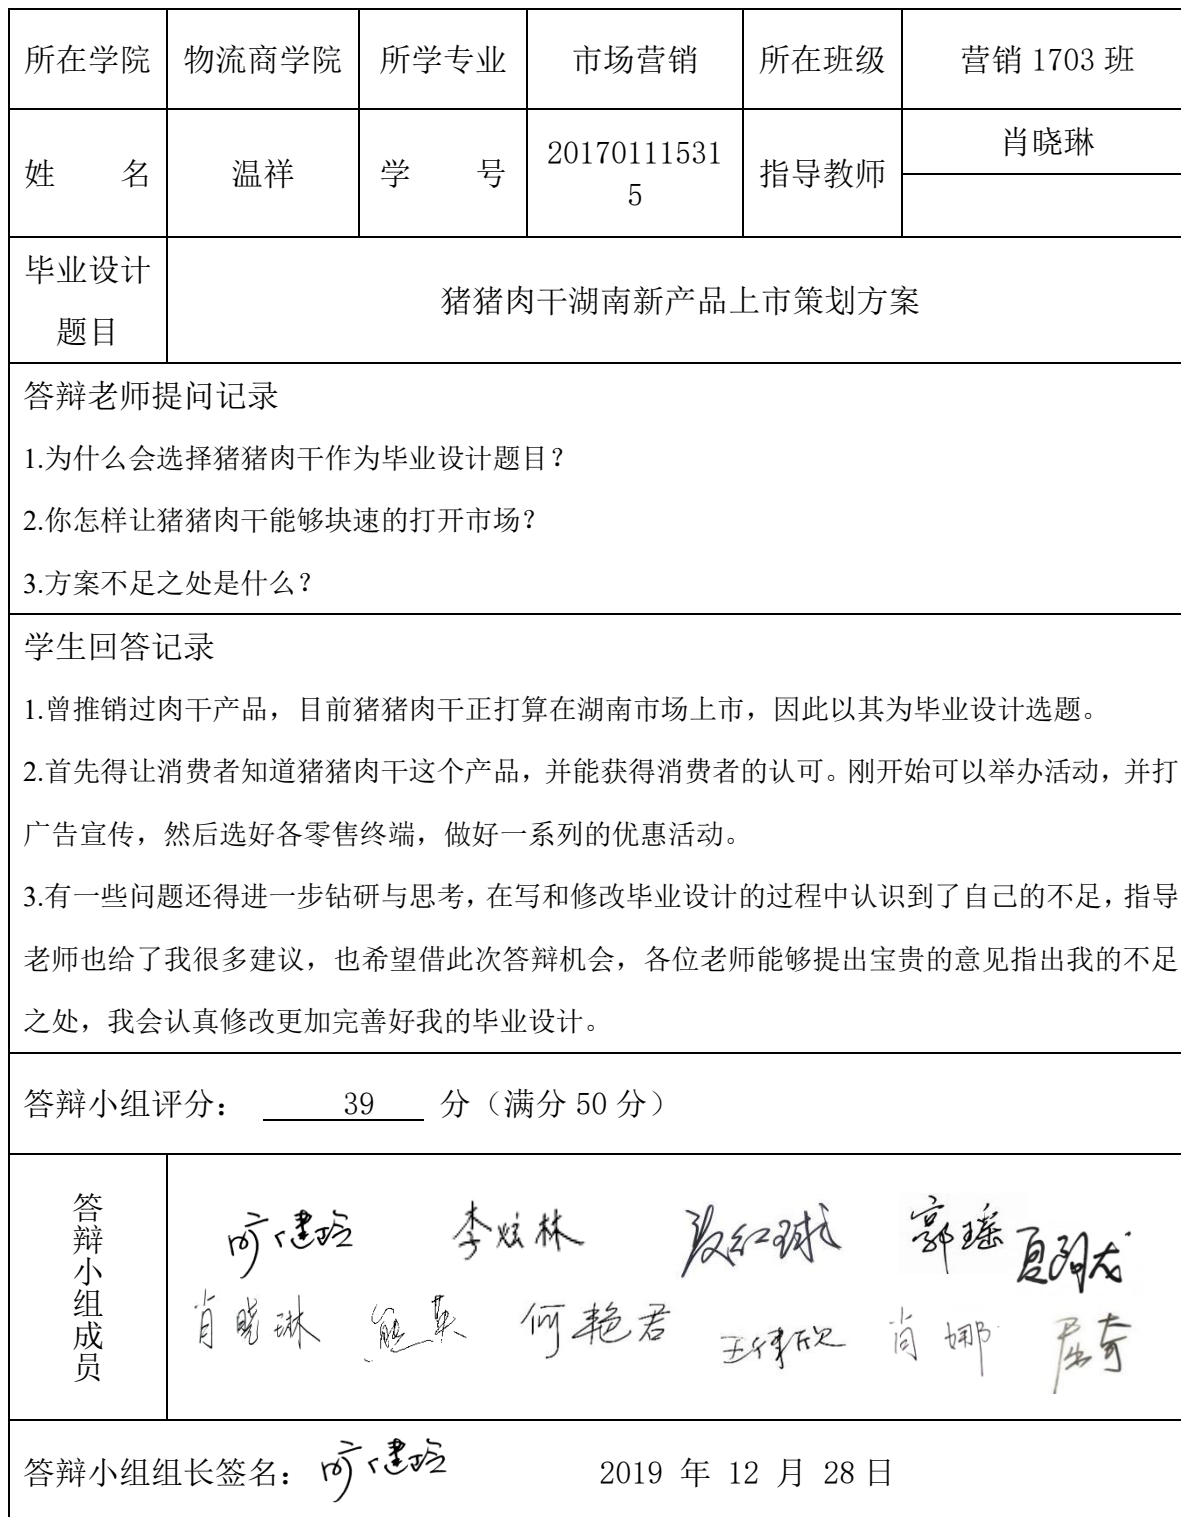 所在学院 物流商学院 所学专业 市场营销 所在班级 营销 1703 班
姓 名 温祥 学 号 20170111531 指导教师 肖晓琳
5
毕业设计
题目
猪猪肉干湖南新产品上市策划方案
答辩老师提问记录
1.为什么会选择猪猪肉干作为毕业设计题目？
2.你怎样让猪猪肉干能够块速的打开市场？
3.方案不足之处是什么？
学生回答记录
1.曾推销过肉干产品，目前猪猪肉干正打算在湖南市场上市，因此以其为毕业设计选题。
2.首先得让消费者知道猪猪肉干这个产品，并能获得消费者的认可。刚开始可以举办活动，并打
广告宣传，然后选好各零售终端，做好一系列的优惠活动。
3.有一些问题还得进一步钻研与思考，在写和修改毕业设计的过程中认识到了自己的不足，指导
老师也给了我很多建议，也希望借此次答辩机会，各位老师能够提出宝贵的意见指出我的不足
之处，我会认真修改更加完善好我的毕业设计。
答辩小组评分： 39 分（满分 50 分）
答辩小组成员
李炫林 郭瑶
肖晓琳 熊英 何艳君 肖娜 屈奇
答辩小组组长签名： 2019 年 12 月 28 日